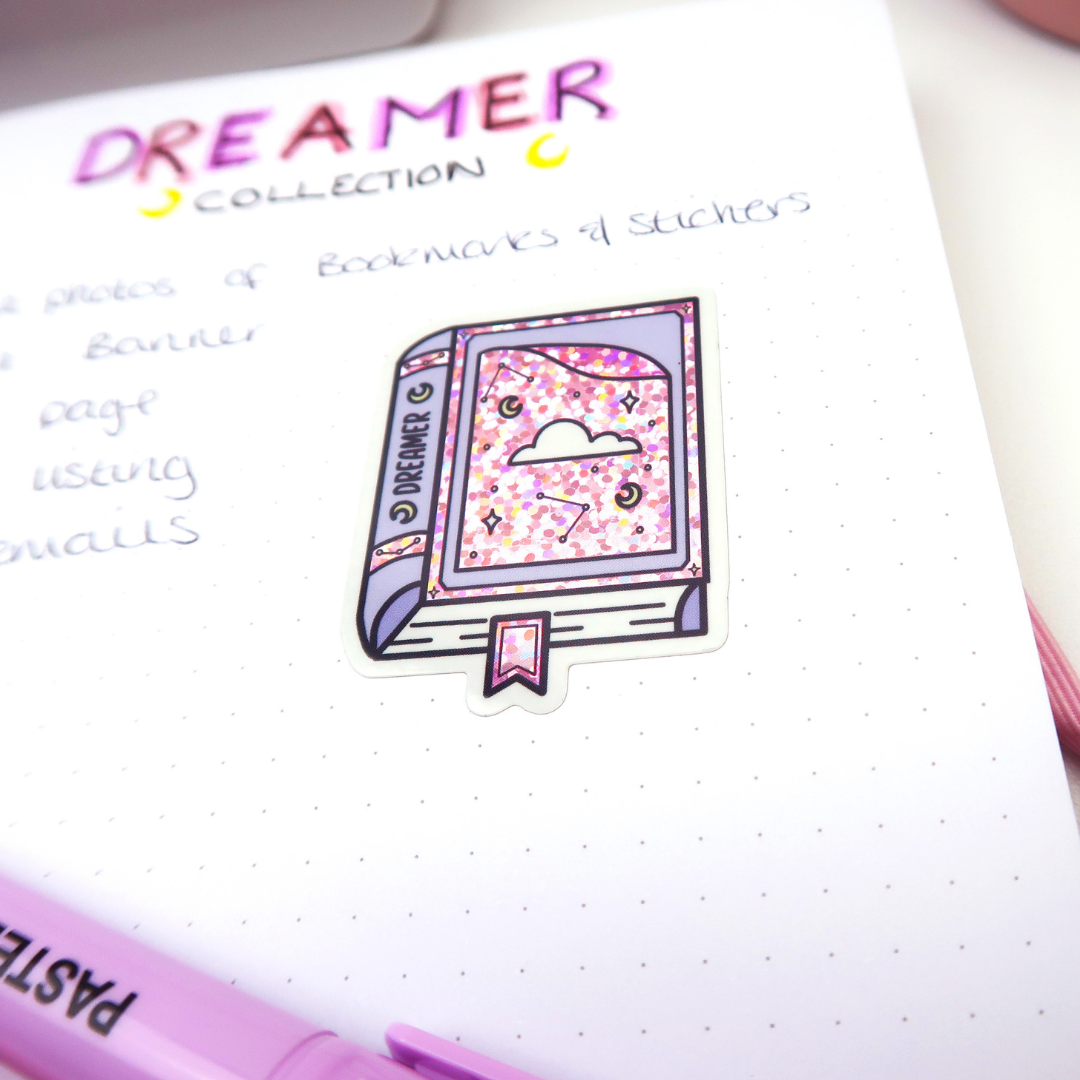 DREAMER
COLLECTION
photos of Bookmarks & Stickers
Banner
page
listing
emails
DREAMER
PASTE